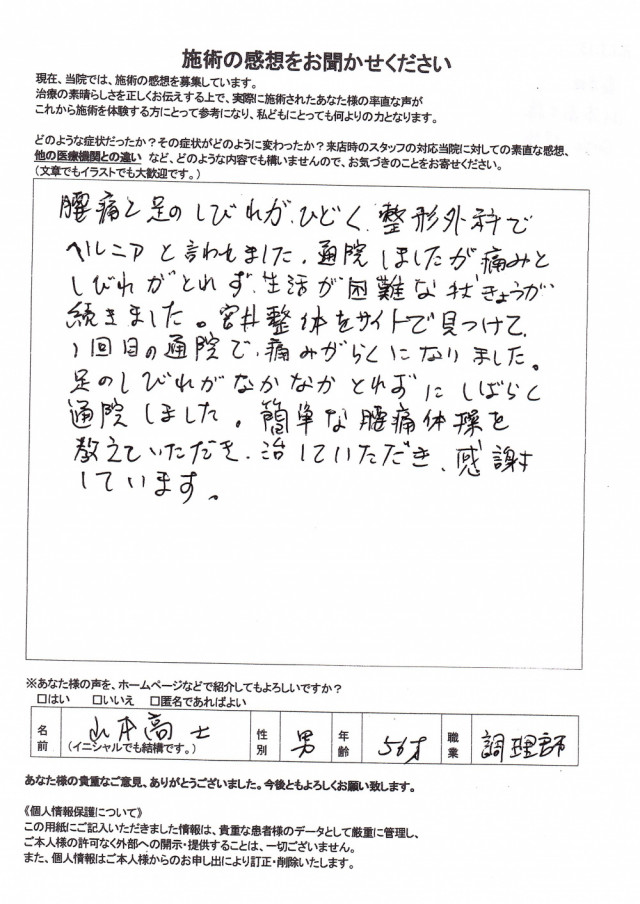 施術の感想をお聞かせください
現在、当院では、施術の感想を募集しています。
治療の素晴らしさを正しくお伝えする上で、実際に施術されたあなた様の率直な声が
これから施術を体験する方にとって参考になり、私どもにとっても何よりの力となります。
どのような症状だったか？その症状がどのように変わったか？来店時のスタッフの対応当院に対しての素直な感想、
他の医療機関との違い など、どのような内容でも構いませんので、お気づきのことをお寄せください。
（文章でもイラストでも大歓迎です。）
腰痛と足のしびれが、ひどく、整形外科で
ヘルニアと言われました。通院しましたが痛みと
しびれがとれず、生活が困難な状きょうが
続きました。宮井整体をサイトで見つけて、
1回目の通院で、痛みがらくになりました。
足のしびれがなかなかとれずにしばらく
通院しました。簡単な腰痛体操を
教えていただき、治していただき、感謝
しています。
※あなた様の声を、ホームページなどで紹介してもよろしいですか？
□はい □いいえ □匿名であればよい
名前 山本高士 （イニシャルでも結構です。） 性別 男 年齢 56才 職業 調理師
あなた様の貴重なご意見、ありがとうございました。今後ともよろしくお願い致します。
《個人情報保護について》
この用紙にご記入いただきました情報は、貴重な患者様のデータとして厳重に管理し、
ご本人様の許可なく外部への開示・提供することは、一切ございません。
また、個人情報はご本人様からのお申し出により訂正・削除いたします。